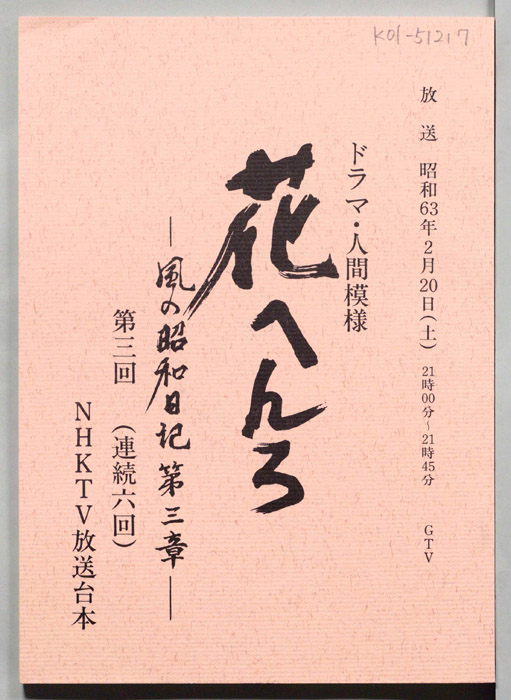 K01-51217
放送 昭和63年2月20日(土) 21時00分〜21時45分 GTV
ドラマ・人間模様
花へんろ
—風の昭和日記 第三章—
第三回 (連続六回)
NHKTV放送台本